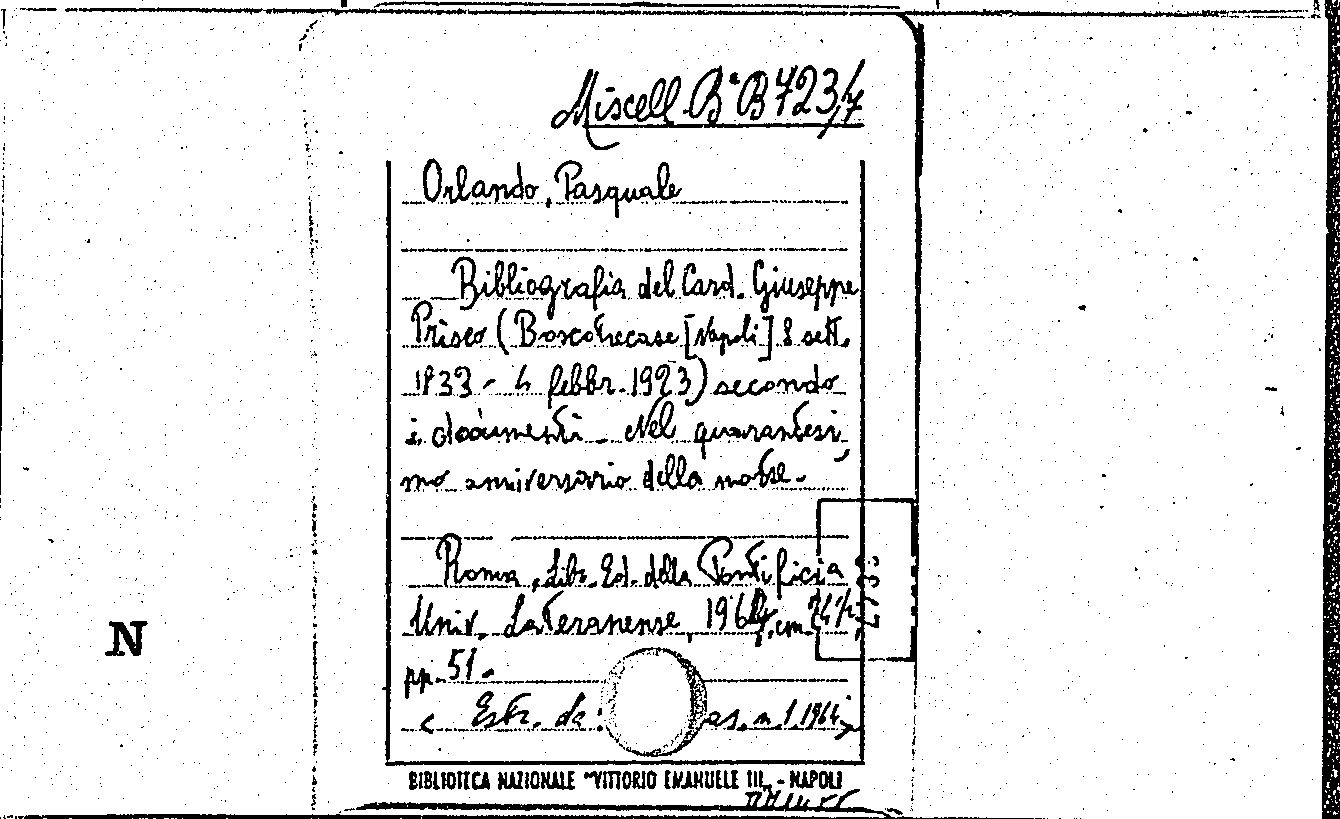 Miscell Bª B 723/7
Orlando, Pasquale
Bibliografia del Card. Giuseppe
Prisco (Boscotrecase [Napoli] 8 sett.
1833 - 4 febbr. 1923) secondo
i documenti - Nel quarantesi,
mo anniversario della morte.
Roma, Libr. Ed. della Pontificia
Univ. Lateranense, 1964, cm.
pp. 51.
< Estr. da: as. n. 1. 1964>
BIBLIOTECA NAZIONALE "VITTORIO EMANUELE III" - NAPOLI
N